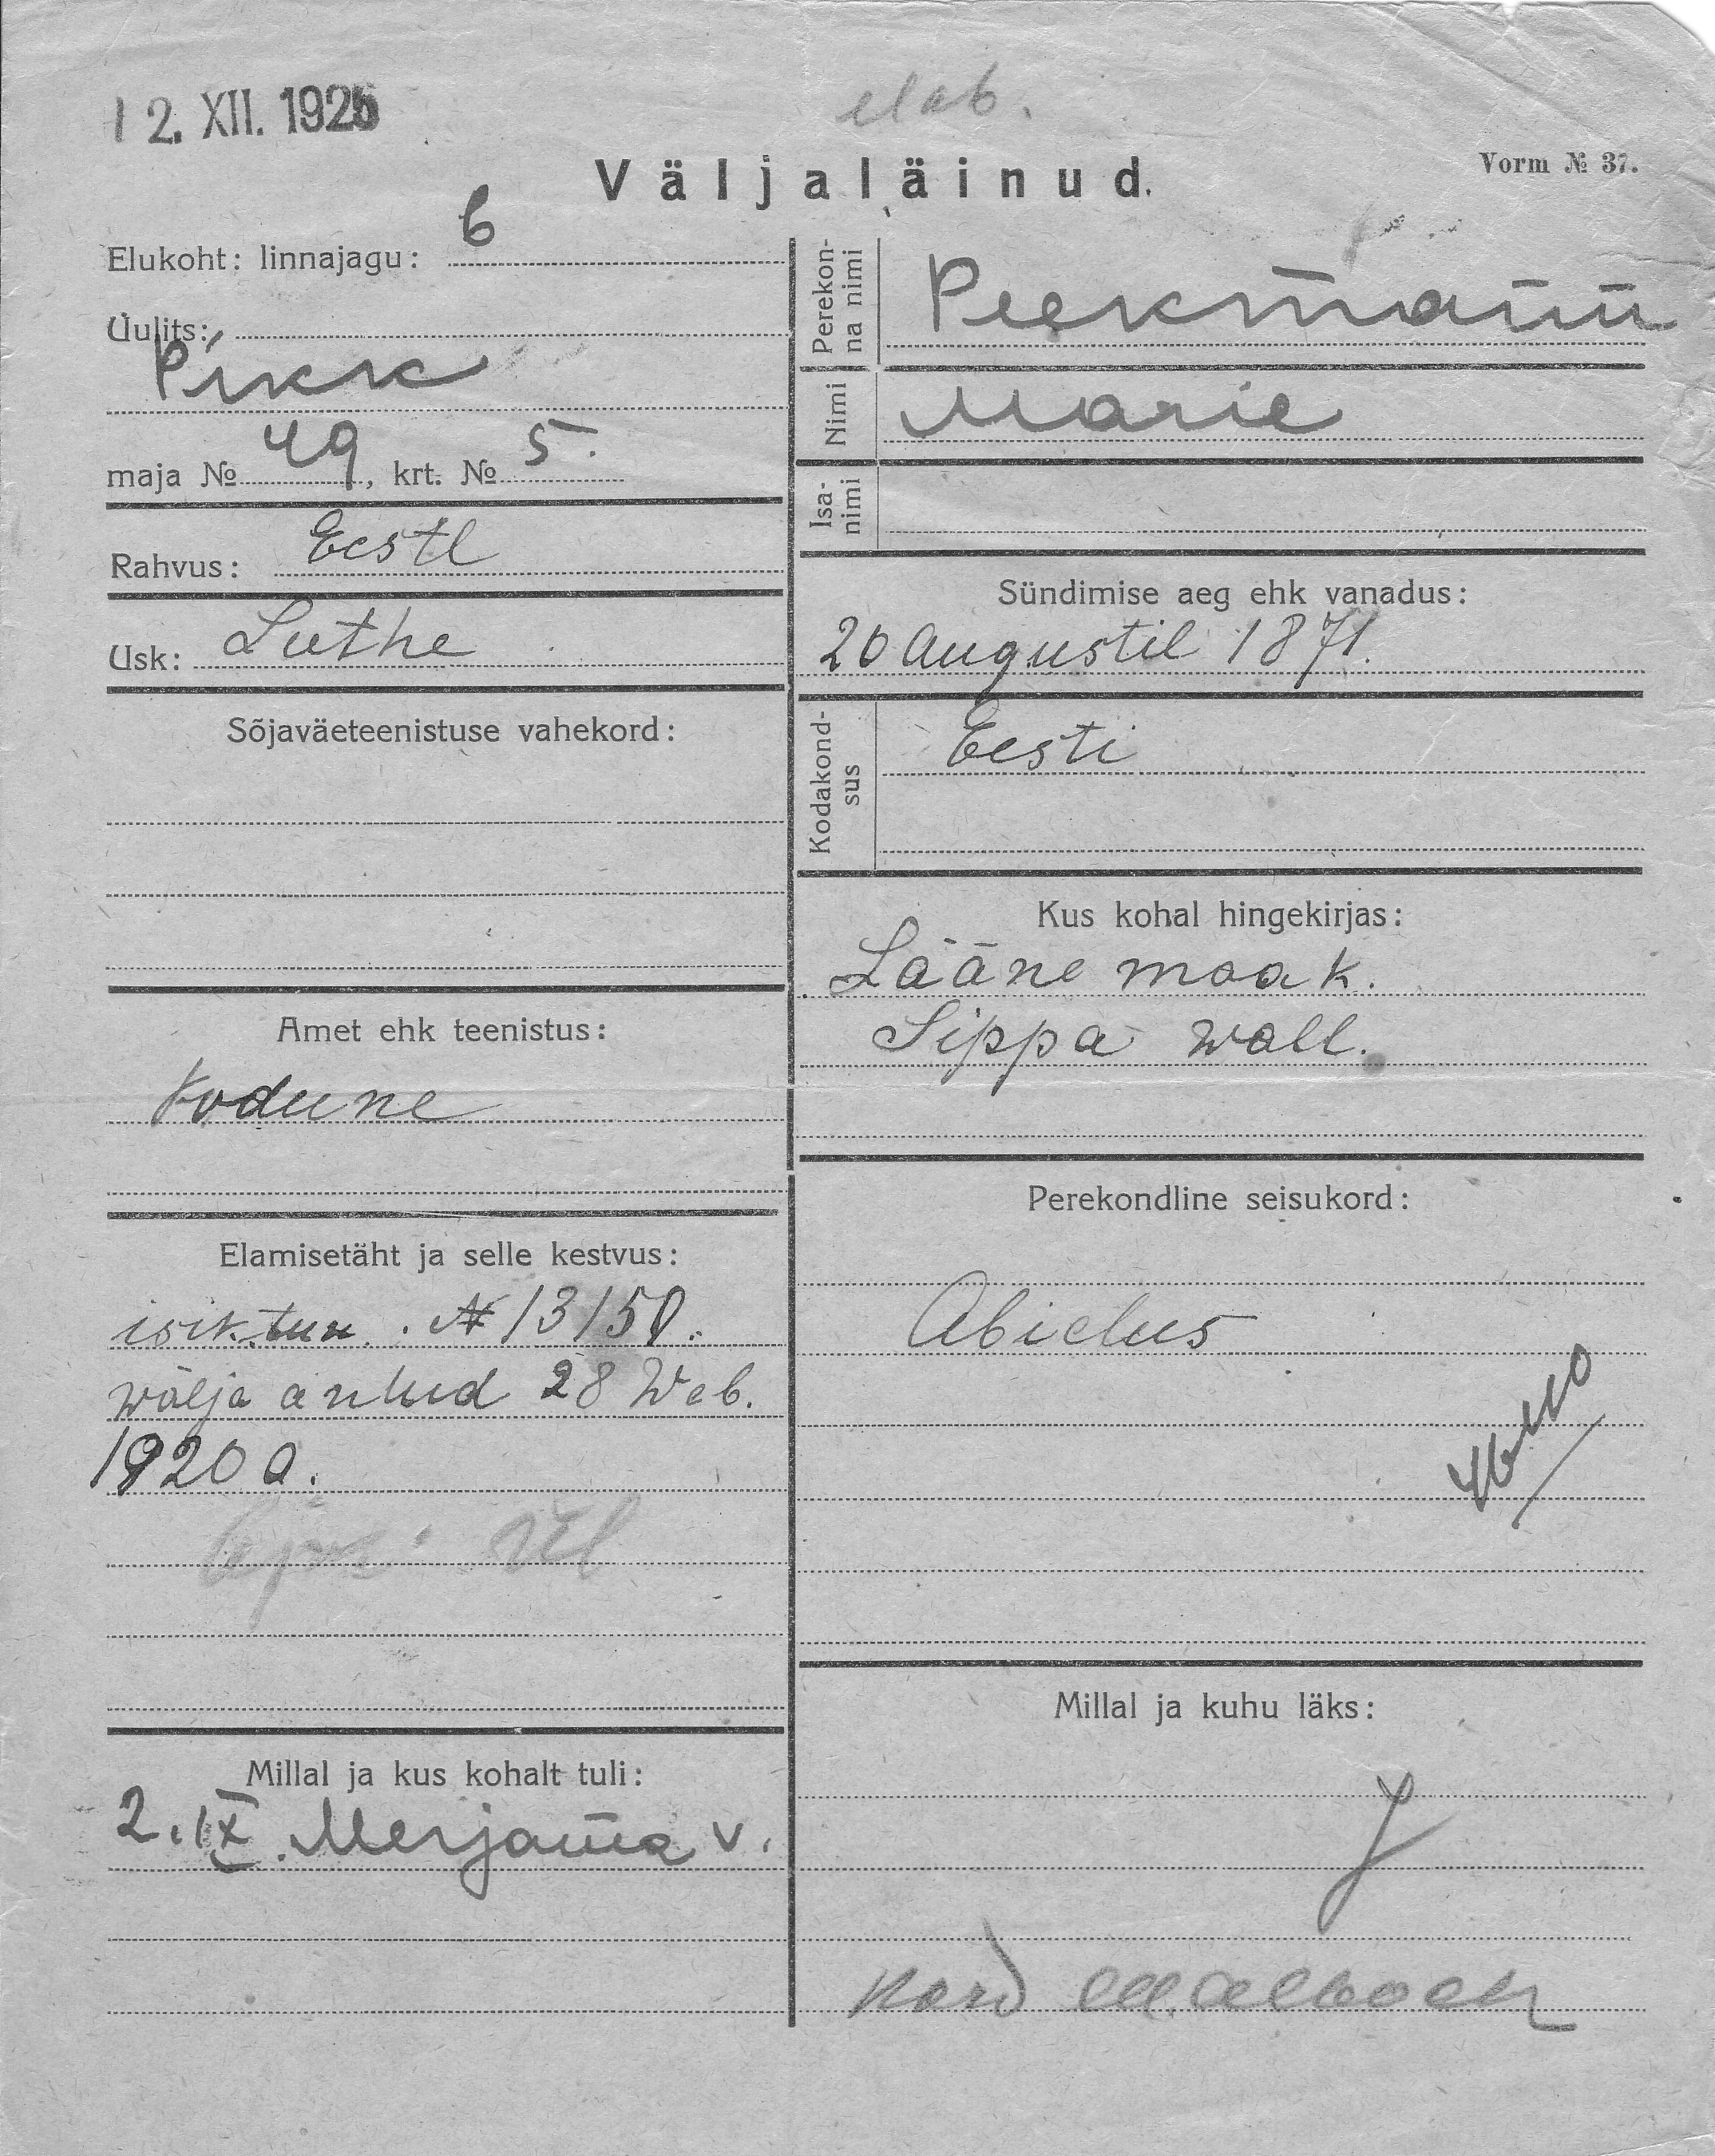 12. XII. 1925
elab.
Väljaläinud.
Vorm № 37.
Elukoht: linnajagu: 6
Uulits:
Pikk
maja № 49, krt. № 5.
Rahvus: Eestl
Usk: Luthe
Sõjaväeteenistuse vahekord:
Amet ehk teenistus:
Kodune
Elamisetäht ja selle kestvus:
isik. tun. № 13150.
wälja antud 28 Web.
1920 a.
Millal ja kus kohalt tuli:
2. IX. Merjama v.
Perekonna nimi
Peekmann
Nimi
Marie
Isa-
nimi
Sündimise aeg ehk vanadus:
20 Augustil 1871.
Kodakond-
sus
Eesti
Kus kohal hingekirjas:
Lääne maak.
Sippa wall.
Perekondline seisukord:
Abielus
Millal ja kuhu läks: